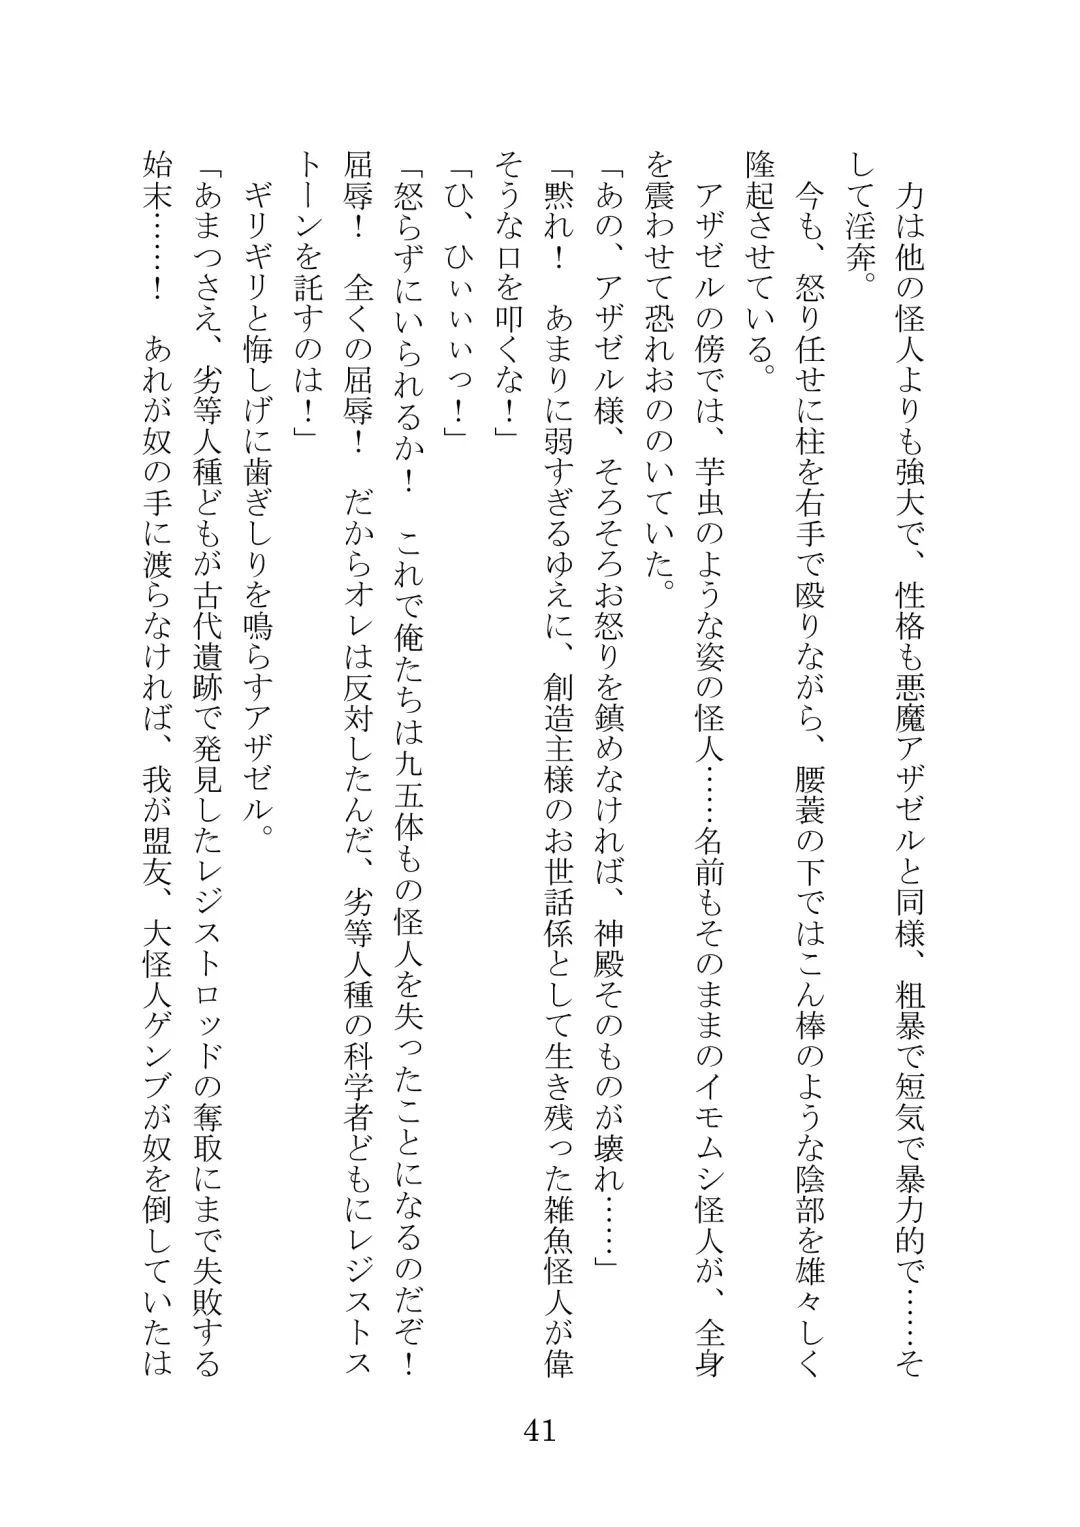 力は他の怪人よりも強大で、性格も悪魔アザゼルと同様、粗暴で短気で暴力的で……そ
して淫奔。
　今も、怒り任せに柱を右手で殴りながら、腰蓑の下ではこん棒のような陰部を雄々しく
隆起させている。
　アザゼルの傍では、芋虫のような姿の怪人……名前もそのままのイモムシ怪人が、全身
を震わせて恐れおののいていた。
「あの、アザゼル様、そろそろお怒りを鎮めなければ、神殿そのものが壊れ……」
「黙れ！　あまりに弱すぎるゆえに、創造主様のお世話係として生き残った雑魚怪人が偉
そうな口を叩くな！」
「ひ、ひぃぃぃっ！」
「怒らずにいられるか！　これで俺たちは九五体もの怪人を失ったことになるのだぞ！
屈辱！　全くの屈辱！　だからオレは反対したんだ、劣等人種の科学者どもにレジストス
トーンを託すのは！」
　ギリギリと悔しげに歯ぎしりを鳴らすアザゼル。
「あまつさえ、劣等人種どもが古代遺跡で発見したレジストロッドの奪取にまで失敗する
始末……！　あれが奴の手に渡らなければ、我が盟友、大怪人ゲンブが奴を倒していたは
41